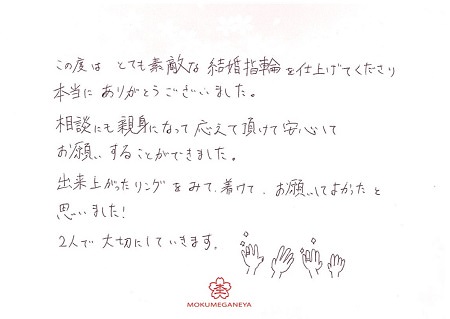 この度は とても素敵な 結婚指輪を仕上げてくださり
本当に ありがとうございました。
相談にも 親身になって 応えて頂けて 安心して
お願いすることができました。
出来上がったリングをみて、着けて、お願いしてよかったと
思いました!
2人で 大切にしていきます。
MOKUMEGANEYA